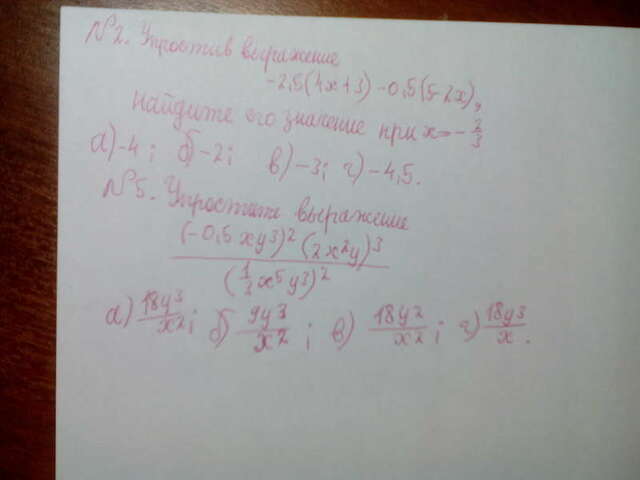 №2. Упростив выражение
-2,5(4x+3)-0,5(5-2x),
найдите его значение при x=-2/3
а)-4; б)-2; в)-3; г)-4,5.
№5. Упростите выражение
(-0,5xy³)²(2x²y)³
(1/3x⁵y³)²
а) 18y³/x²; б) 9y³/x²; в) 18y²/x²; г) 18y³/x.